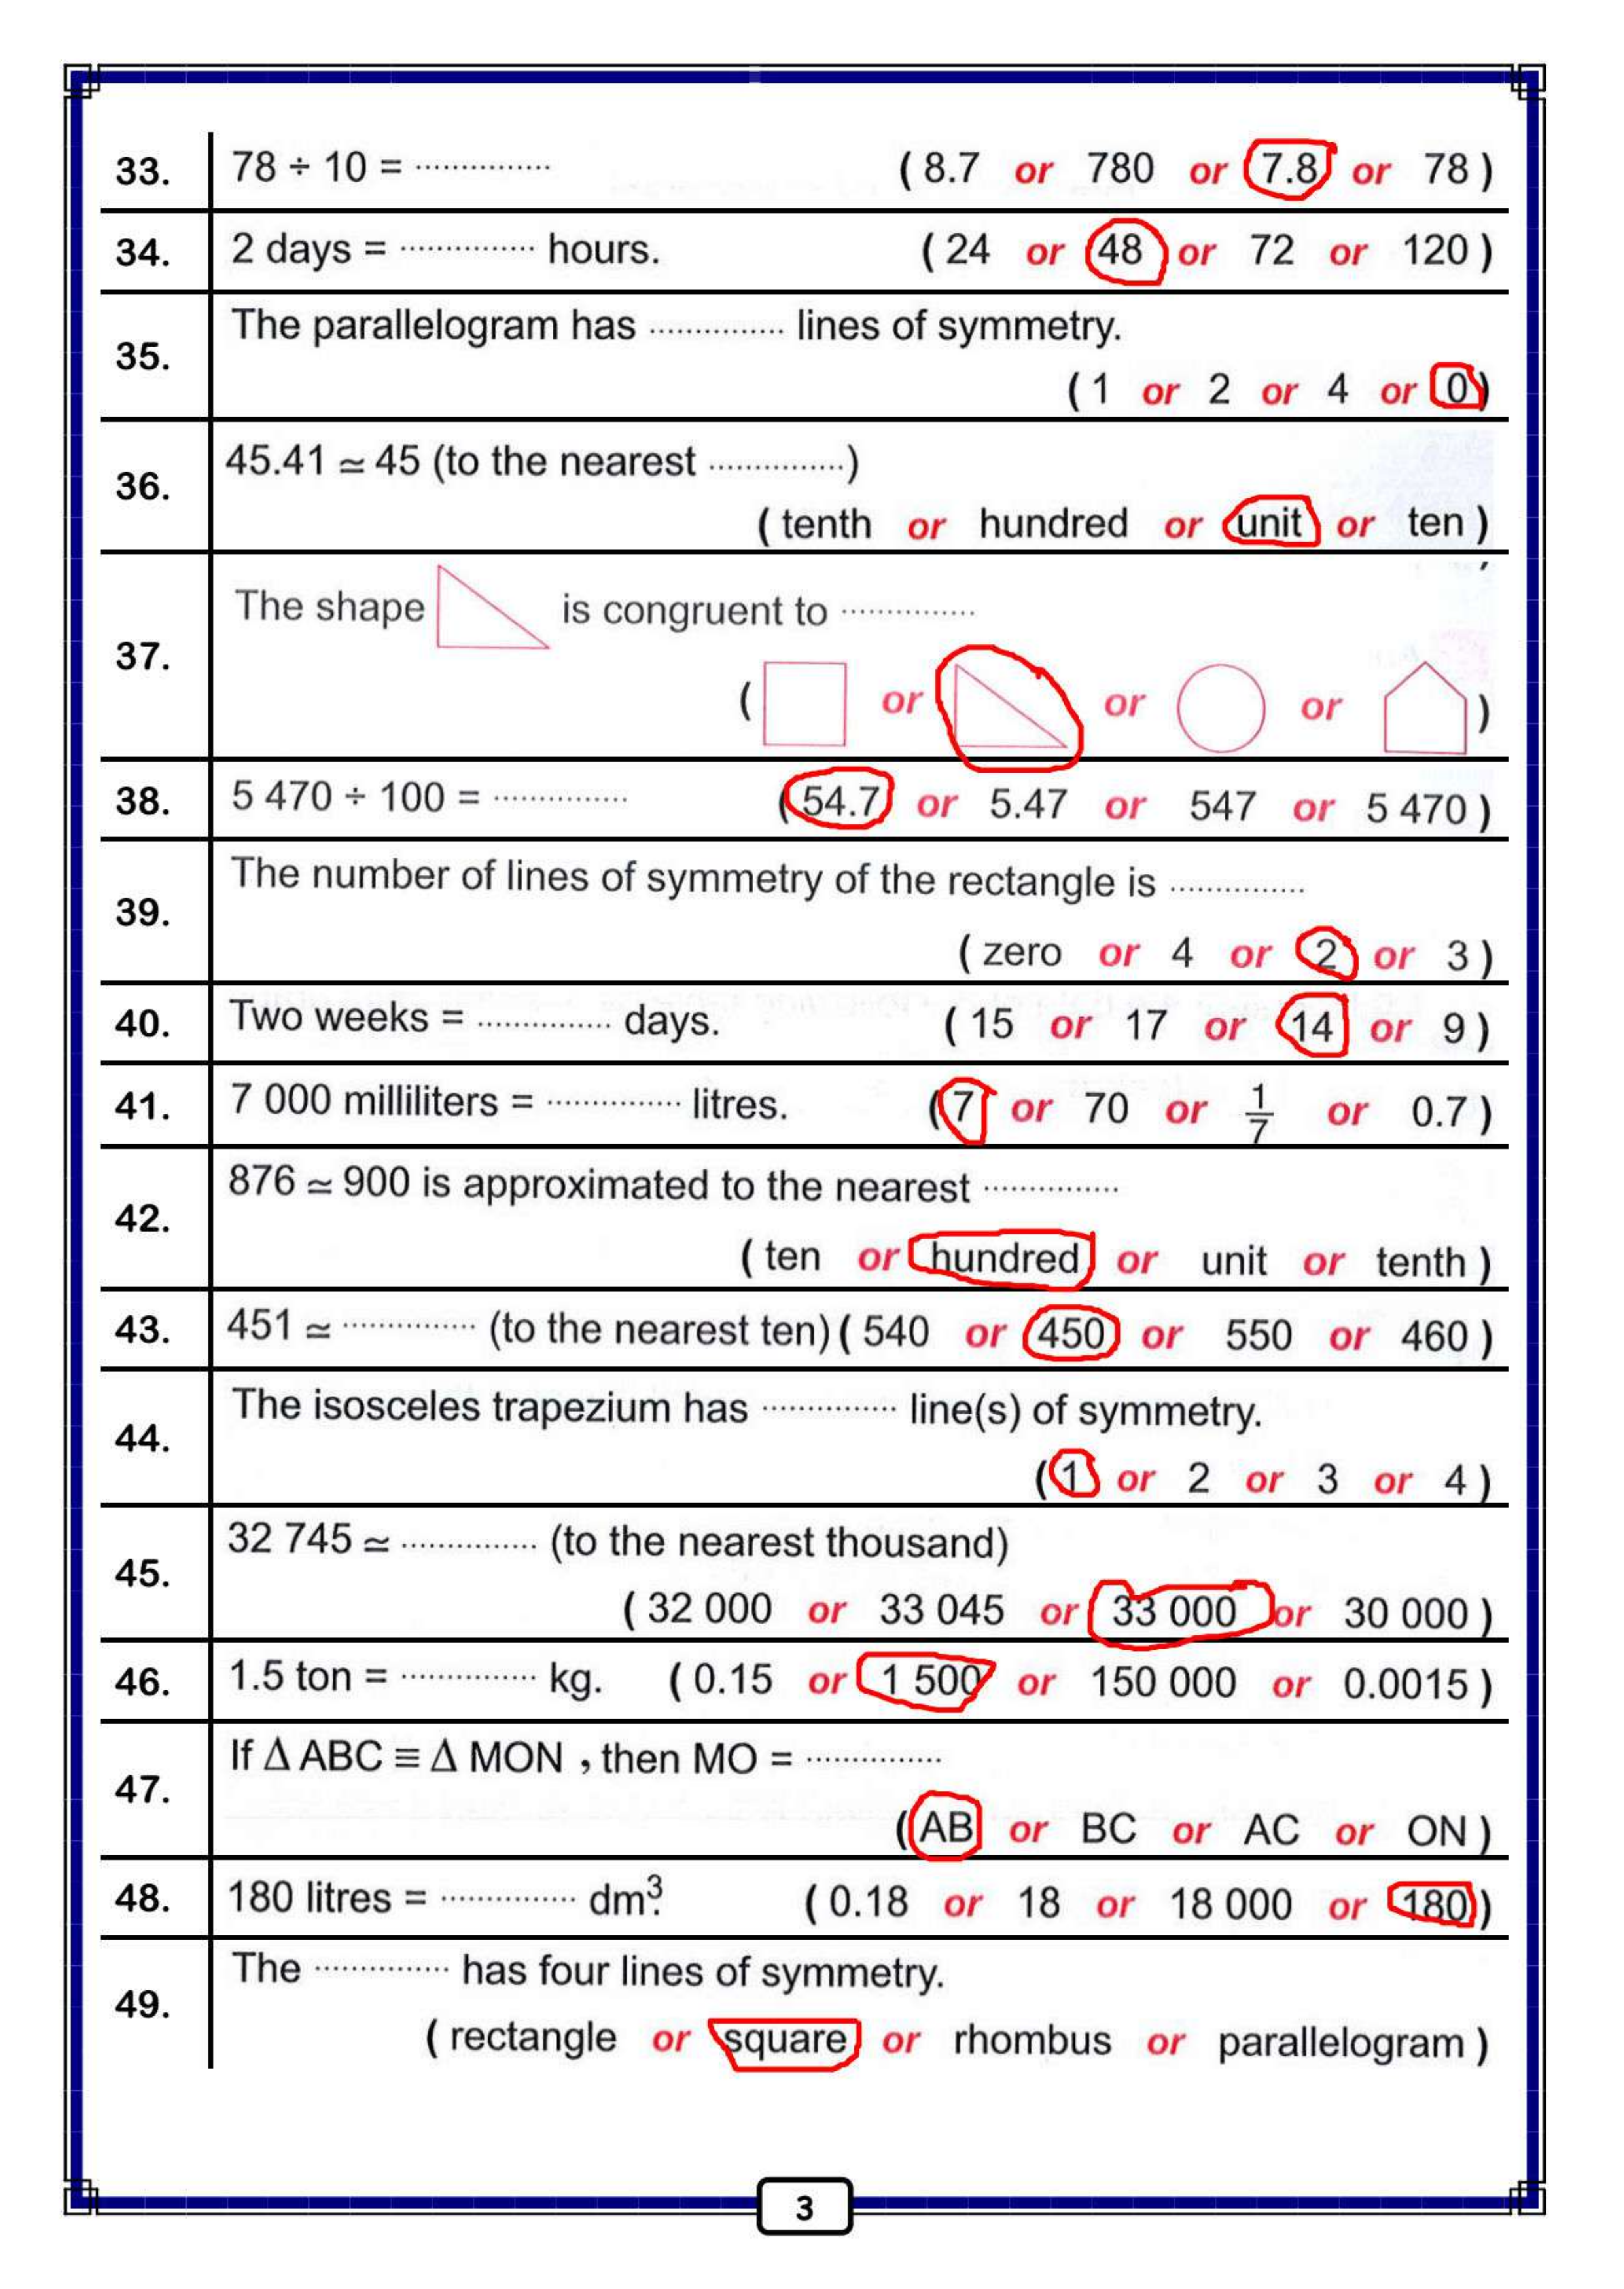 33. 78 ÷ 10 = ............... ( 8.7 or 780 or 7.8 or 78 )
34. 2 days = ............... hours. ( 24 or 48 or 72 or 120 )
The parallelogram has ............... lines of symmetry.
35.
( 1 or 2 or 4 or 0 )
45.41 ≃ 45 (to the nearest ...............)
36.
( tenth or hundred or unit or ten )
The shape is congruent to ...............
37.
( or or or )
38. 5 470 ÷ 100 = ............... ( 54.7 or 5.47 or 547 or 5 470 )
The number of lines of symmetry of the rectangle is ...............
39.
( zero or 4 or 2 or 3 )
40. Two weeks = ............... days. ( 15 or 17 or 14 or 9 )
41. 7 000 milliliters = ............... litres. ( 7 or 70 or 1/7 or 0.7 )
876 ≃ 900 is approximated to the nearest ...............
42.
( ten or hundred or unit or tenth )
43. 451 ≃ ............... (to the nearest ten) ( 540 or 450 or 550 or 460 )
The isosceles trapezium has ............... line(s) of symmetry.
44.
( 1 or 2 or 3 or 4 )
32 745 ≃ ............... (to the nearest thousand)
45.
( 32 000 or 33 045 or 33 000 or 30 000 )
46. 1.5 ton = ............... kg. ( 0.15 or 1 500 or 150 000 or 0.0015 )
If Δ ABC ≡ Δ MON , then MO = ...............
47.
( AB or BC or AC or ON )
48. 180 litres = ............... dm³. ( 0.18 or 18 or 18 000 or 180 )
The ............... has four lines of symmetry.
49.
( rectangle or square or rhombus or parallelogram )
3